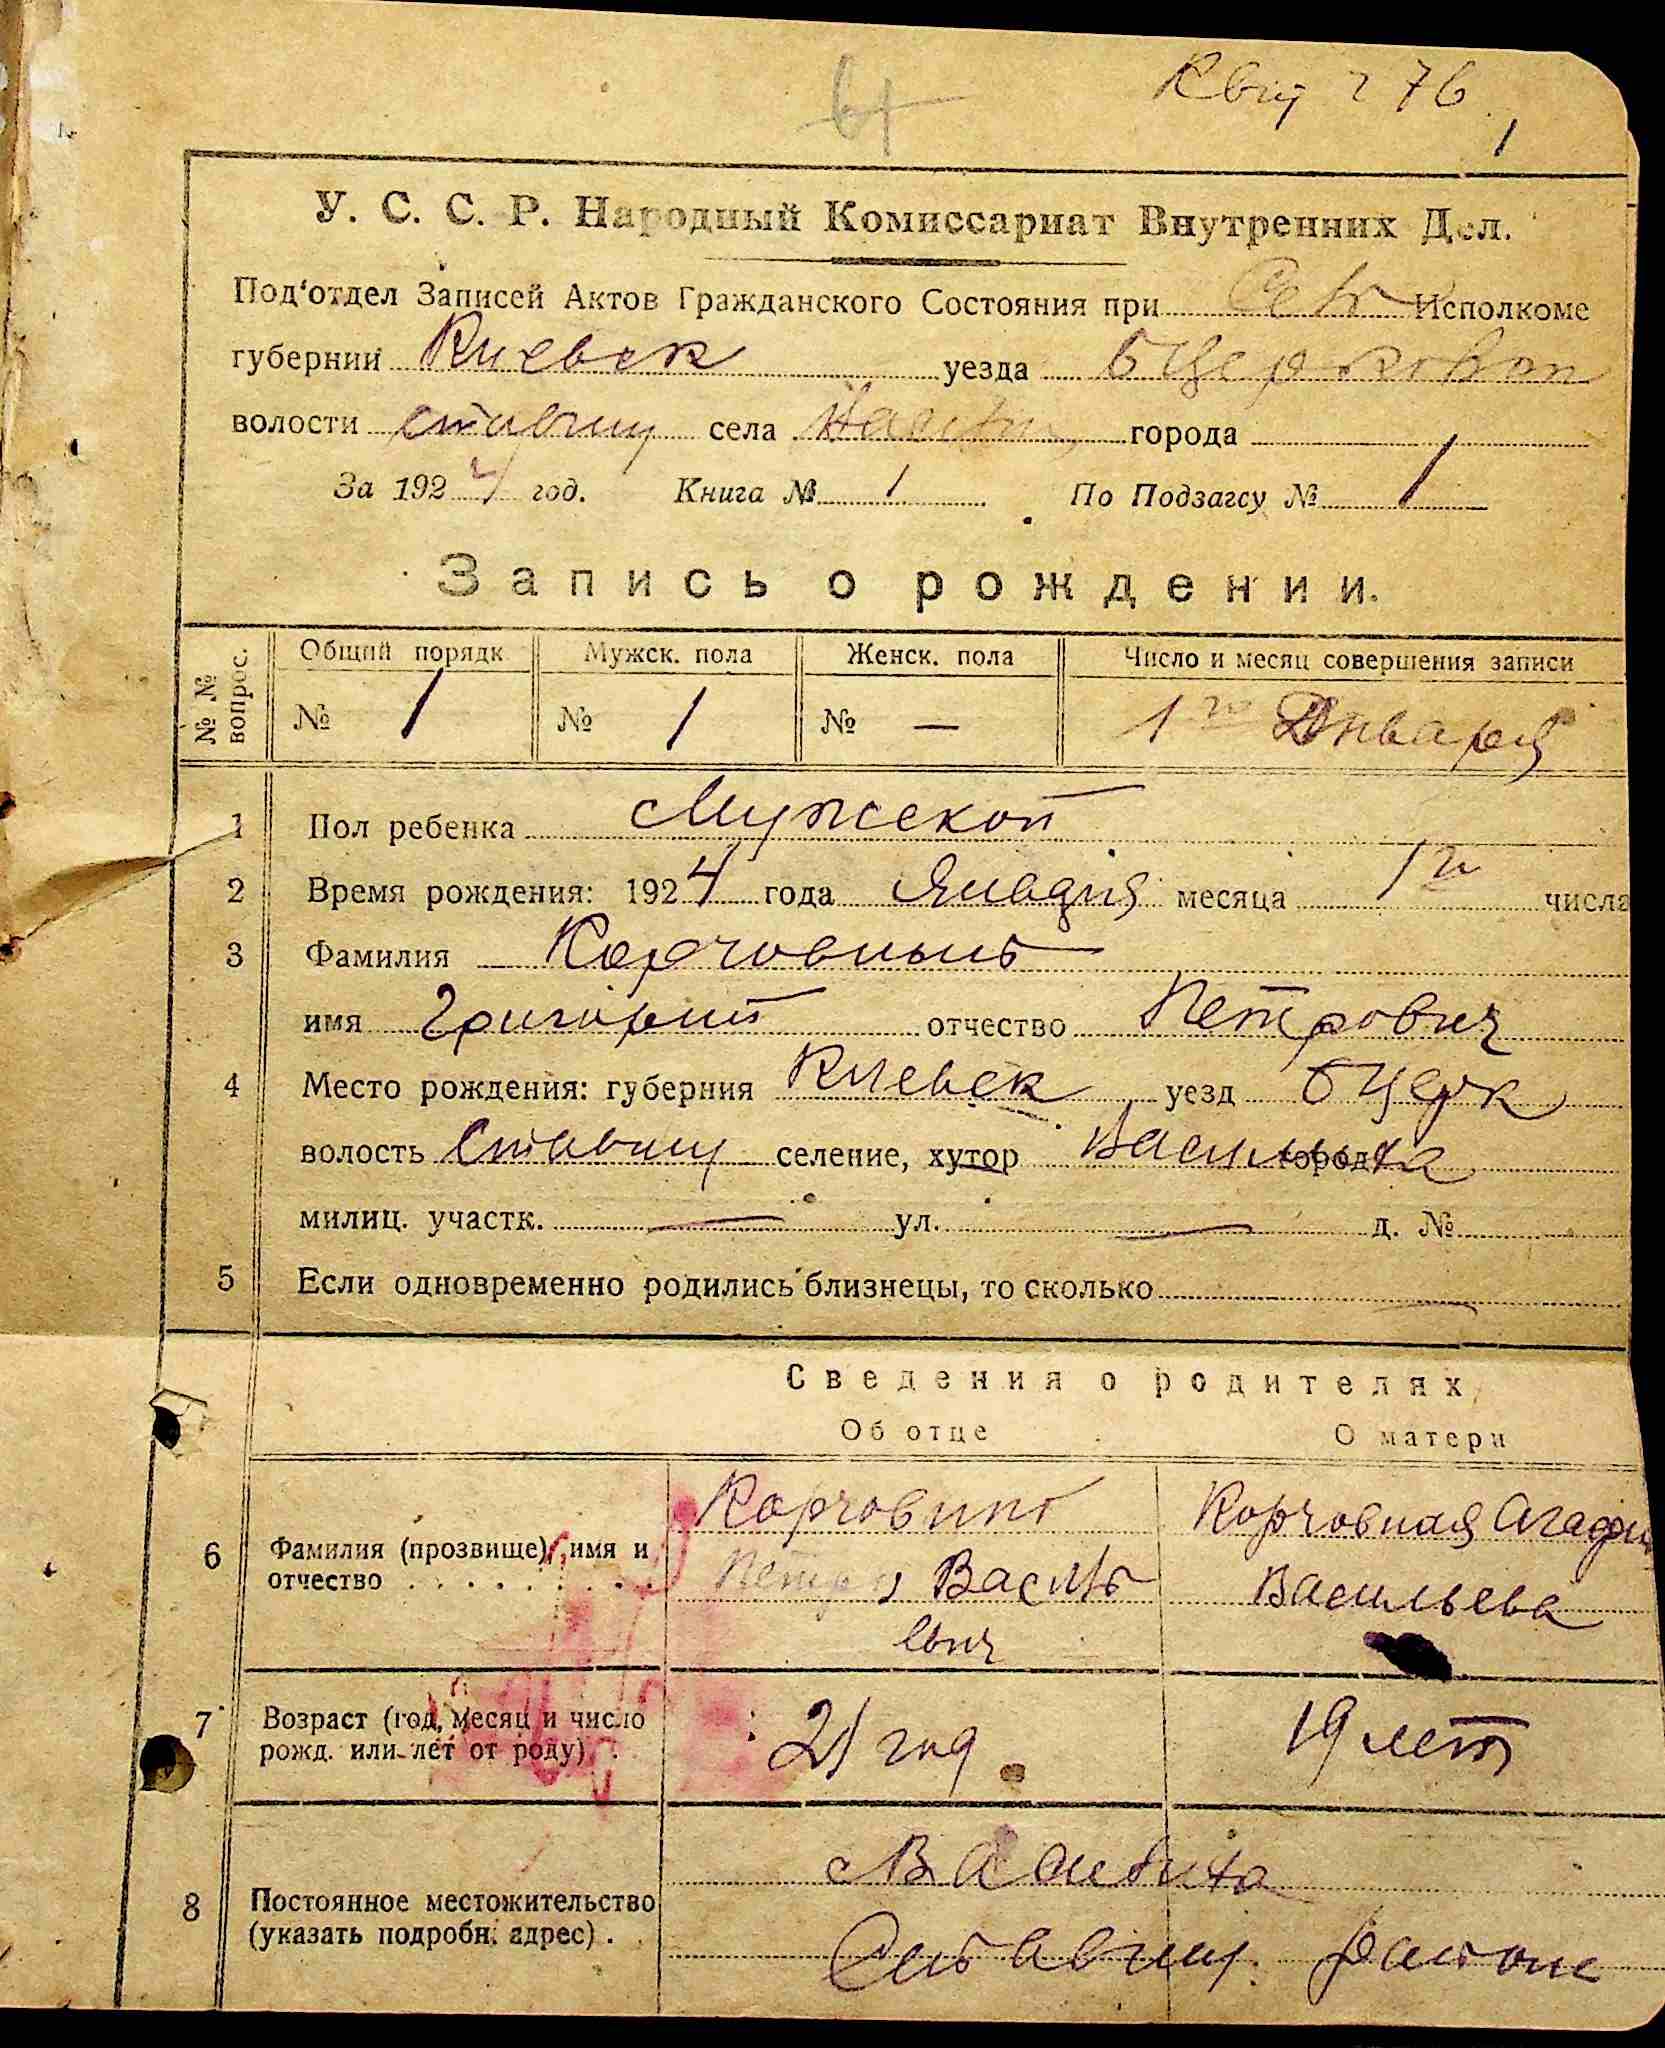 276
1
У. С. С. Р. Народный Комиссариат Внутренних Дел.
Под'отдел Записей Актов Гражданского Состояния при Исполкоме
губернии Киевск уезда БЦерковск
волости Ставищ села города
За 1924 год. Книга № 1 По Подзагсу № 1
Запись о рождении.
№ № вопрос. Общий порядк Мужск. пола Женск. пола Число и месяц совершения записи
№ 1 № 1 № — 1го Января
1 Пол ребенка Мужской
2 Время рождения: 1924 года Января месяца 1го числа
3 Фамилия Корчовный
имя Григорий отчество Петрович
4 Место рождения: губерния Киевск уезд БЦерк
волость Ставищ селение, хутор Василиха город
милиц. участк. — ул. — д. №
5 Если одновременно родились близнецы, то сколько —
Сведения о родителях
Об отце О матери
6 Фамилия (прозвище), имя и отчество Корчовный Корчовная Агафия
Петро Василь Васильева
евич
7 Возраст (год, месяц и число рожд. или лет от роду) 21 год 19 лет
8 Постоянное местожительство (указать подробн. адрес)
Ставищ. района